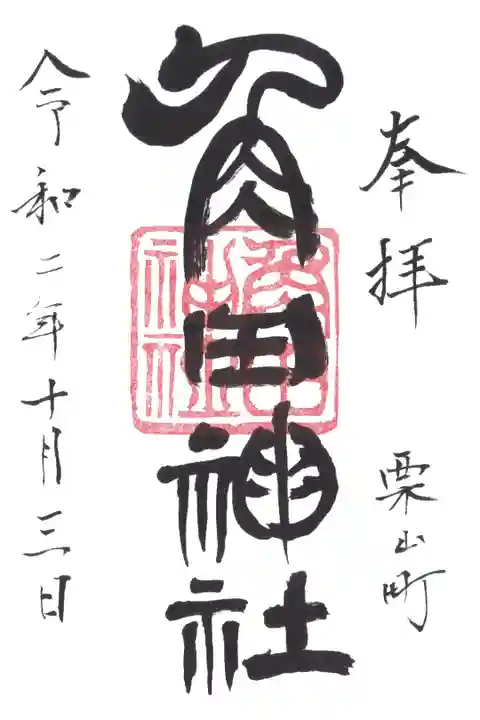 奉拝
栗山町
角田神社
令和二年十月三日